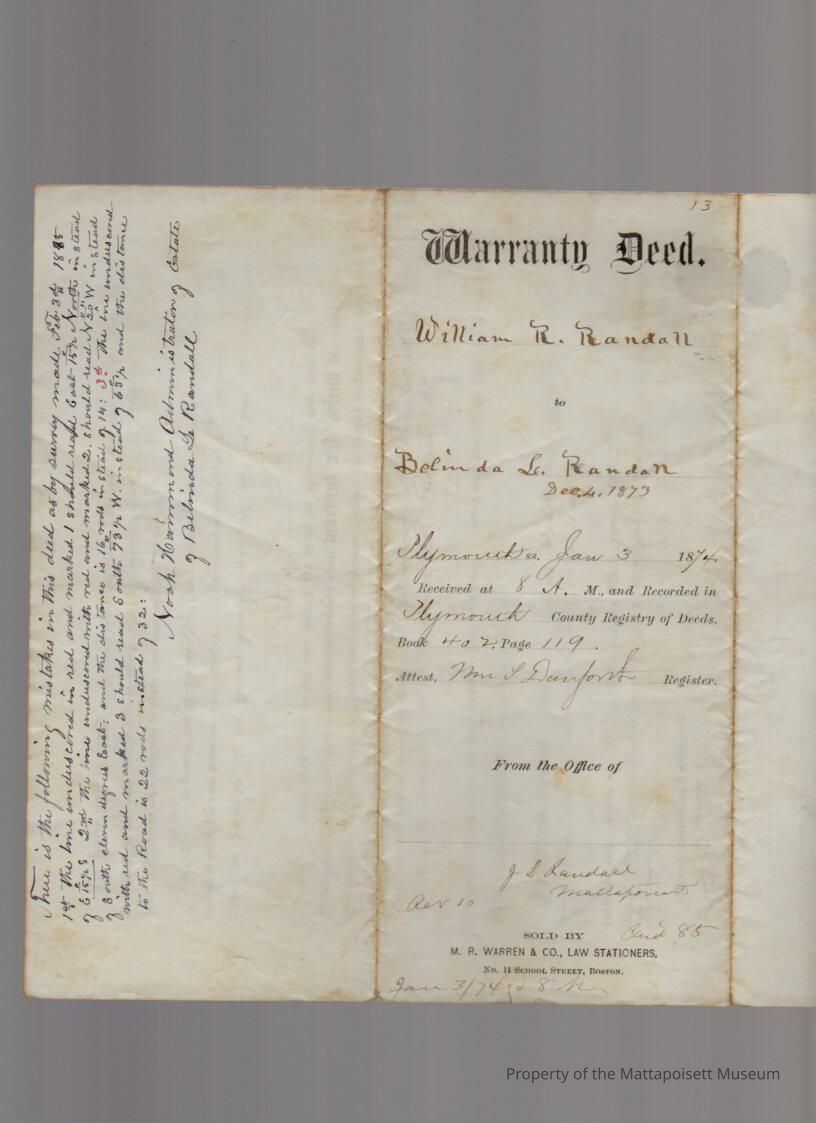 There is the following mistakes in this deed as by survey made Feb 3d 1885
1st The line underscored in red and marked 1 should read East 15½ North instead
of E 15½ S 2nd The line underscored with red and marked 2. should read N 20 W instead
of South eleven degrees East: and the distance is 16 rods instead of 14: 3d The line underscored
with red and marked 3 should read South 73½ W. instead of 63½ and the distance
to the Road is 22 rods instead of 32:
Noah Hammond Administrator of Estate
of Belinda L. Randall
13
Warranty Deed.
William R. Randall
to
Belinda L. Randall
Dec. 4. 1873
Plymouth ss. Jan 3 1874.
Received at 8 A. M., and Recorded in
Plymouth County Registry of Deeds.
Book 402, Page 119.
Attest, Wm S Danforth Register.
From the Office of
J S Randall
Mattapoisett
10
85
SOLD BY
M. R. WARREN & CO., LAW STATIONERS,
No. 14 School Street, Boston.
Jan 3/74 8
Property of the Mattapoisett Museum